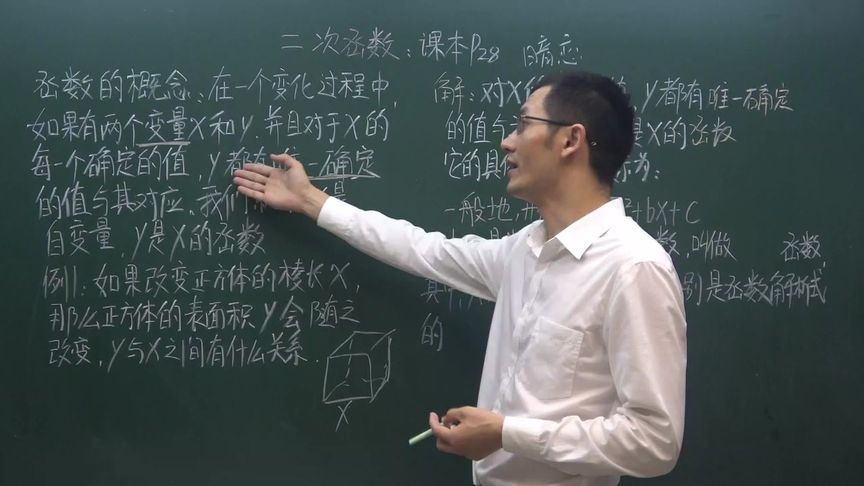 二次函数：课本P28 暗恋
函数的概念：在一个变化过程中，
如果有两个变量X和y，并且对于X的
每一个确定的值，y都有唯一确定
的值与其对应，我们
自变量，y是X的函数
例1：如果改变正方体的棱长X，
那么正方体的表面积y会随之
改变，y与X之间有什么关系．
X
解：对X的 值，y都有唯一确定
的值与 X的函数
它的具 为：
一般地，形 ²+bX+C
数，叫做 函数，
其中 别是函数解析式
的